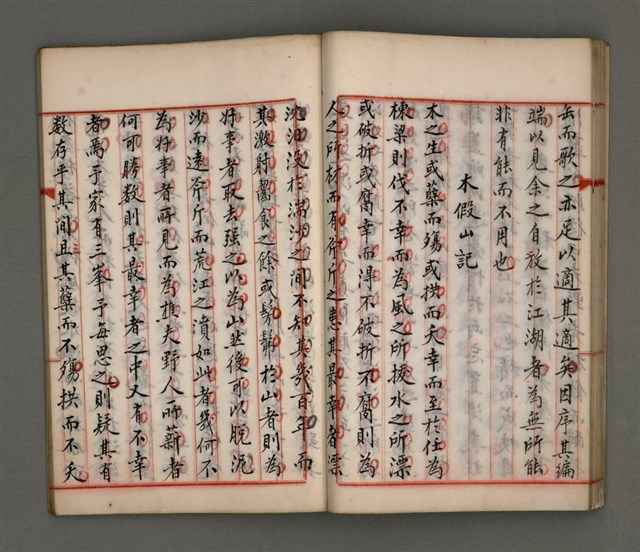 缶而歌之亦足以適其適矣因序其編
端以見余之自放於江湖者為無所能
非有能而不用也
木假山記
木之生或蘗而殤或拱而夭幸而至於任為
棟梁則伐不幸而為風之所拔水之所漂
或破折或腐幸而得不破折不腐則為
人之所材而有斧斤之患其最幸者漂
沈汩沒於湍沙之間不知其幾百年而
其激射齧食之餘或髣髴於山者則為
好事者取去强之以為山然後可以脫泥
沙而遠斧斤而荒江之濆如此者幾何不
為好事者所見而為樵夫野人所薪者
何可勝數則其最幸者之中又有不幸
者焉予家有三峯予每思之則疑其有
数存乎其間且其蘗而不殤拱而不夭